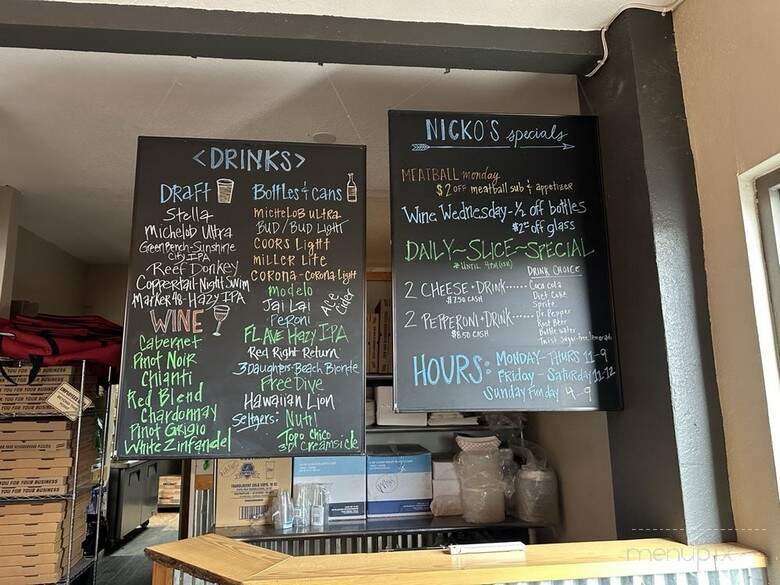 <DRINKS>
DRAFT
Stella
Michelob Ultra
Green Bench-Sunshine
City IPA
Reef Donkey
Coppertail Night Swim
Marker 48-Hazy IPA
WINE
Cabernet
Pinot Noir
Chianti
Red Blend
Chardonnay
Pinot Grigio
White Zinfandel
Bottles & Cans
Michelob Ultra
BUD/Bud Light
COORS Light
Miller Lite
Corona-Corona Light
Modelo
Jai Lai
Peroni
Ace Cider
FLAVE Hazy IPA
Red Right Return
3 Daughters-Beach Blonde
Free Dive
Hawaiian Lion
Seltzers: Nutrl
Topo Chico
3D Creamsicle
NICKO'S specials
MEATBALL monday
$2 OFF meatball sub & appetizer
Wine Wednesday-½ off bottles
$2.00 off glass
DAILY~SLICE~SPECIAL
DRINK CHOICE
2 CHEESE+DRINK......
$7.50 CASH
2 PEPPERONI+DRINK.....
$8.50 CASH
Coca cola
Diet Coke
Sprite
Dr. Pepper
Root Beer
Bottle water
HOURS: MONDAY-THURS 11-9
FRiday-Saturday 11-12
Sunday Funday 9-9
YOU FOR YOUR BUSINESS
menupix